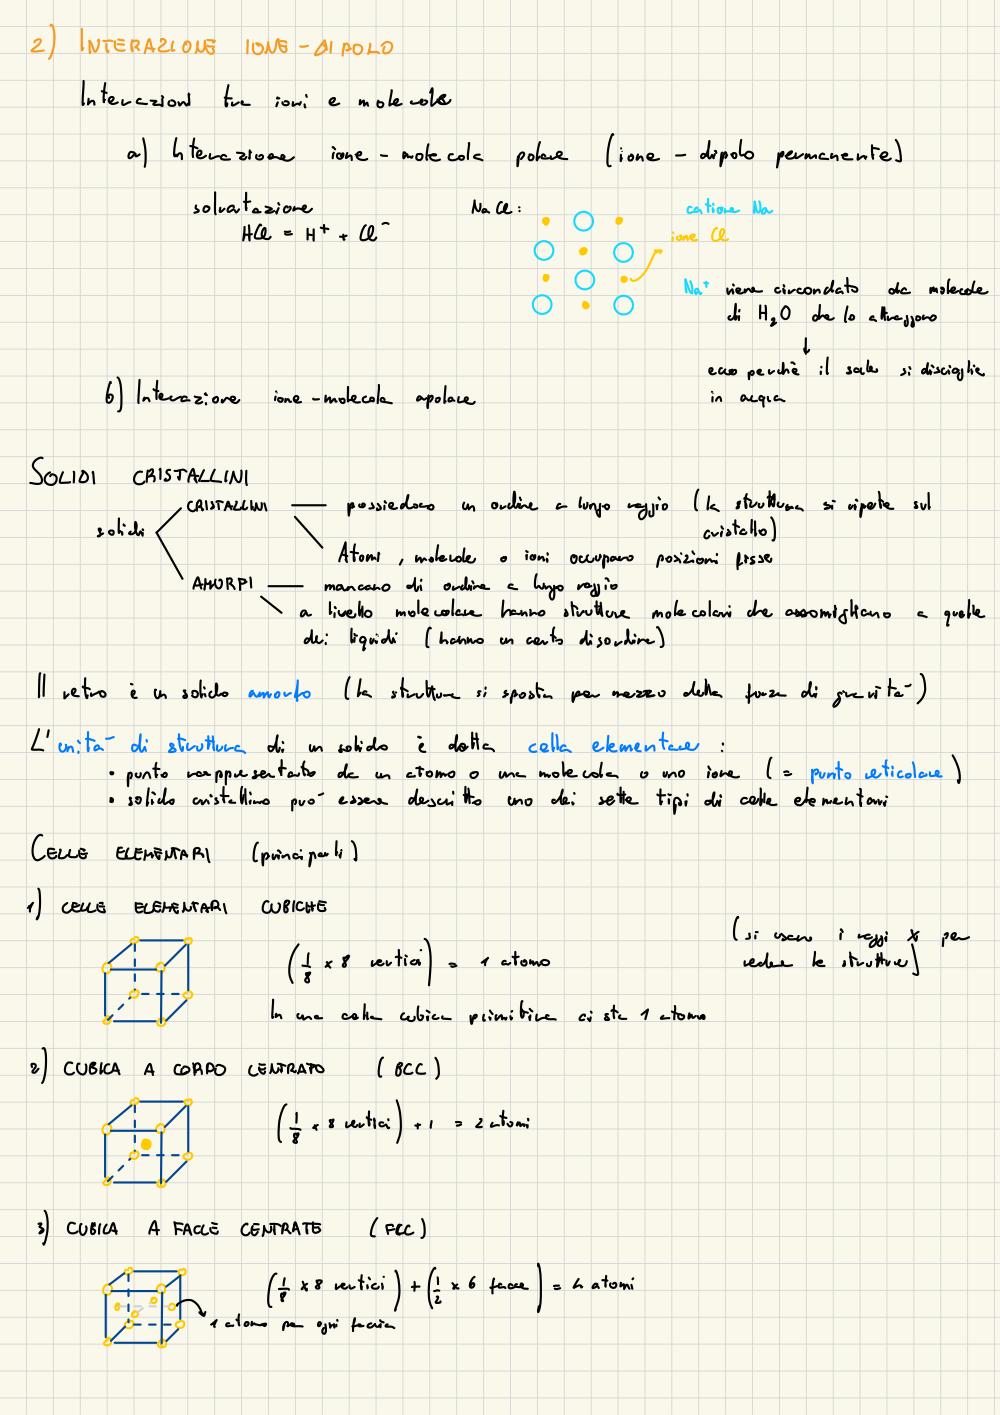 2) INTERAZIONE IONE-DIPOLO
Interazioni tra ioni e molecole
a) Interazione ione - molecola polare (ione - dipolo permanente)
solvatazione
HCl = H⁺ + Cl⁻
NaCl:
catione Na
ione Cl
Na⁺ viene circondato da molecole
di H₂O che lo attraggono
↓
ecco perchè il sale si discioglie
in acqua
b) Interazione ione-molecola apolare
SOLIDI CRISTALLINI
solidi
CRISTALLINI — possiedono un ordine a lungo raggio (la struttura si ripete sul
cristallo)
Atomi, molecole o ioni occupano posizioni fisse
AMORFI — mancano di ordine a lungo raggio
a livello molecolare hanno strutture molecolari che assomigliano a quelle
dei liquidi (hanno un certo disordine)
Il vetro è un solido amorfo (la struttura si sposta per mezzo della forza di gravità)
L'unità di struttura di un solido è detta cella elementare :
• punto rappresentato da un atomo o una molecola o uno ione (= punto reticolare)
• solido cristallino può essere descritto uno dei sette tipi di celle elementari
CELLE ELEMENTARI (principali)
1) CELLE ELEMENTARI CUBICHE
(si usano i raggi X per
vedere le strutture)
(1/8 x 8 vertici) = 1 atomo
In una cella cubica primitiva ci sta 1 atomo
2) CUBICA A CORPO CENTRATO (BCC)
(1/8 x 8 vertici) + 1 = 2 atomi
3) CUBICA A FACCE CENTRATE (FCC)
(1/8 x 8 vertici) + (1/2 x 6 facce) = 4 atomi
1 atomo per ogni faccia